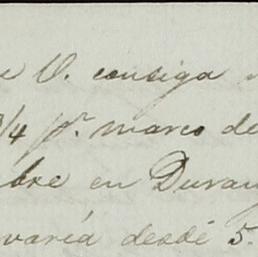 e V. consiga
3/4 pr. marco de
bre en Duran
varía desde 5.